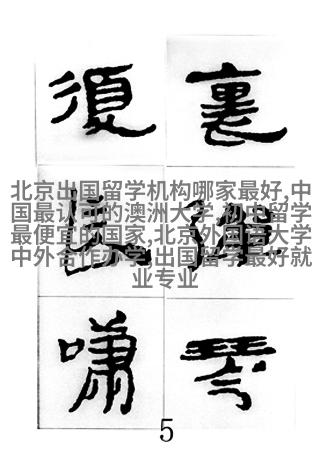 裏彈琴
復長嘯
北京出国留学机构哪家最好,中
国最认可的澳洲大学,初中留学
最便宜的国家,北京外国语大学
中外合作办学,出国留学最好就
业专业
5